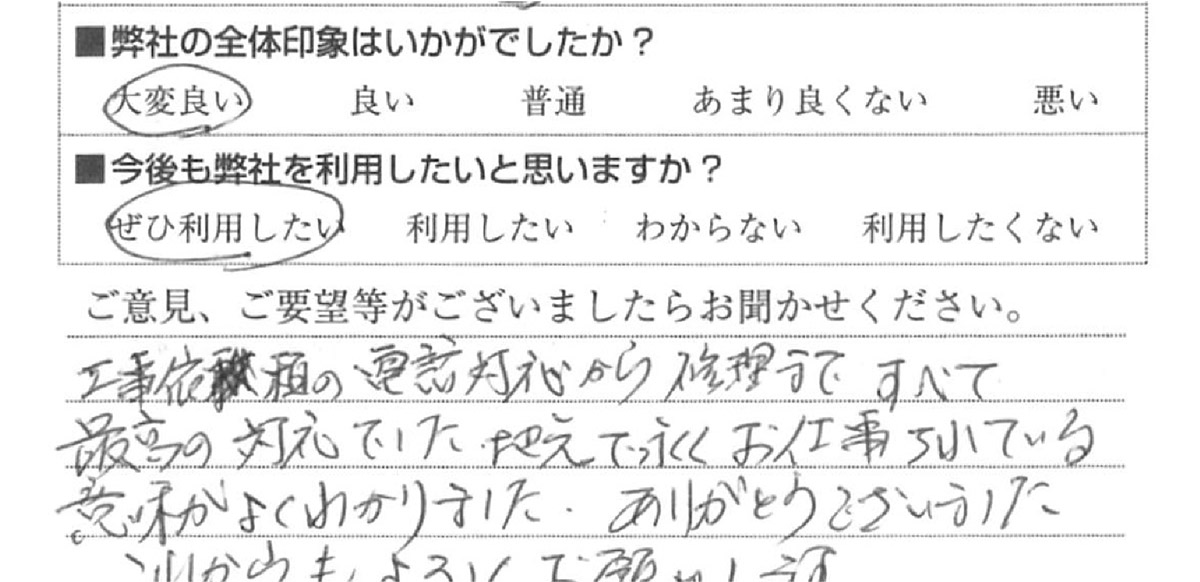 ■弊社の全体印象はいかがでしたか？
大変良い 良い 普通 あまり良くない 悪い
■今後も弊社を利用したいと思いますか？
ぜひ利用したい 利用したい わからない 利用したくない
ご意見、ご要望等がございましたらお聞かせください。
工事依頼の電話対応から修理まで すべて
最高の対応でした 地元で永くお仕事されている
意味がよくわかりました. ありがとうございました
これからも よろしく お願いします